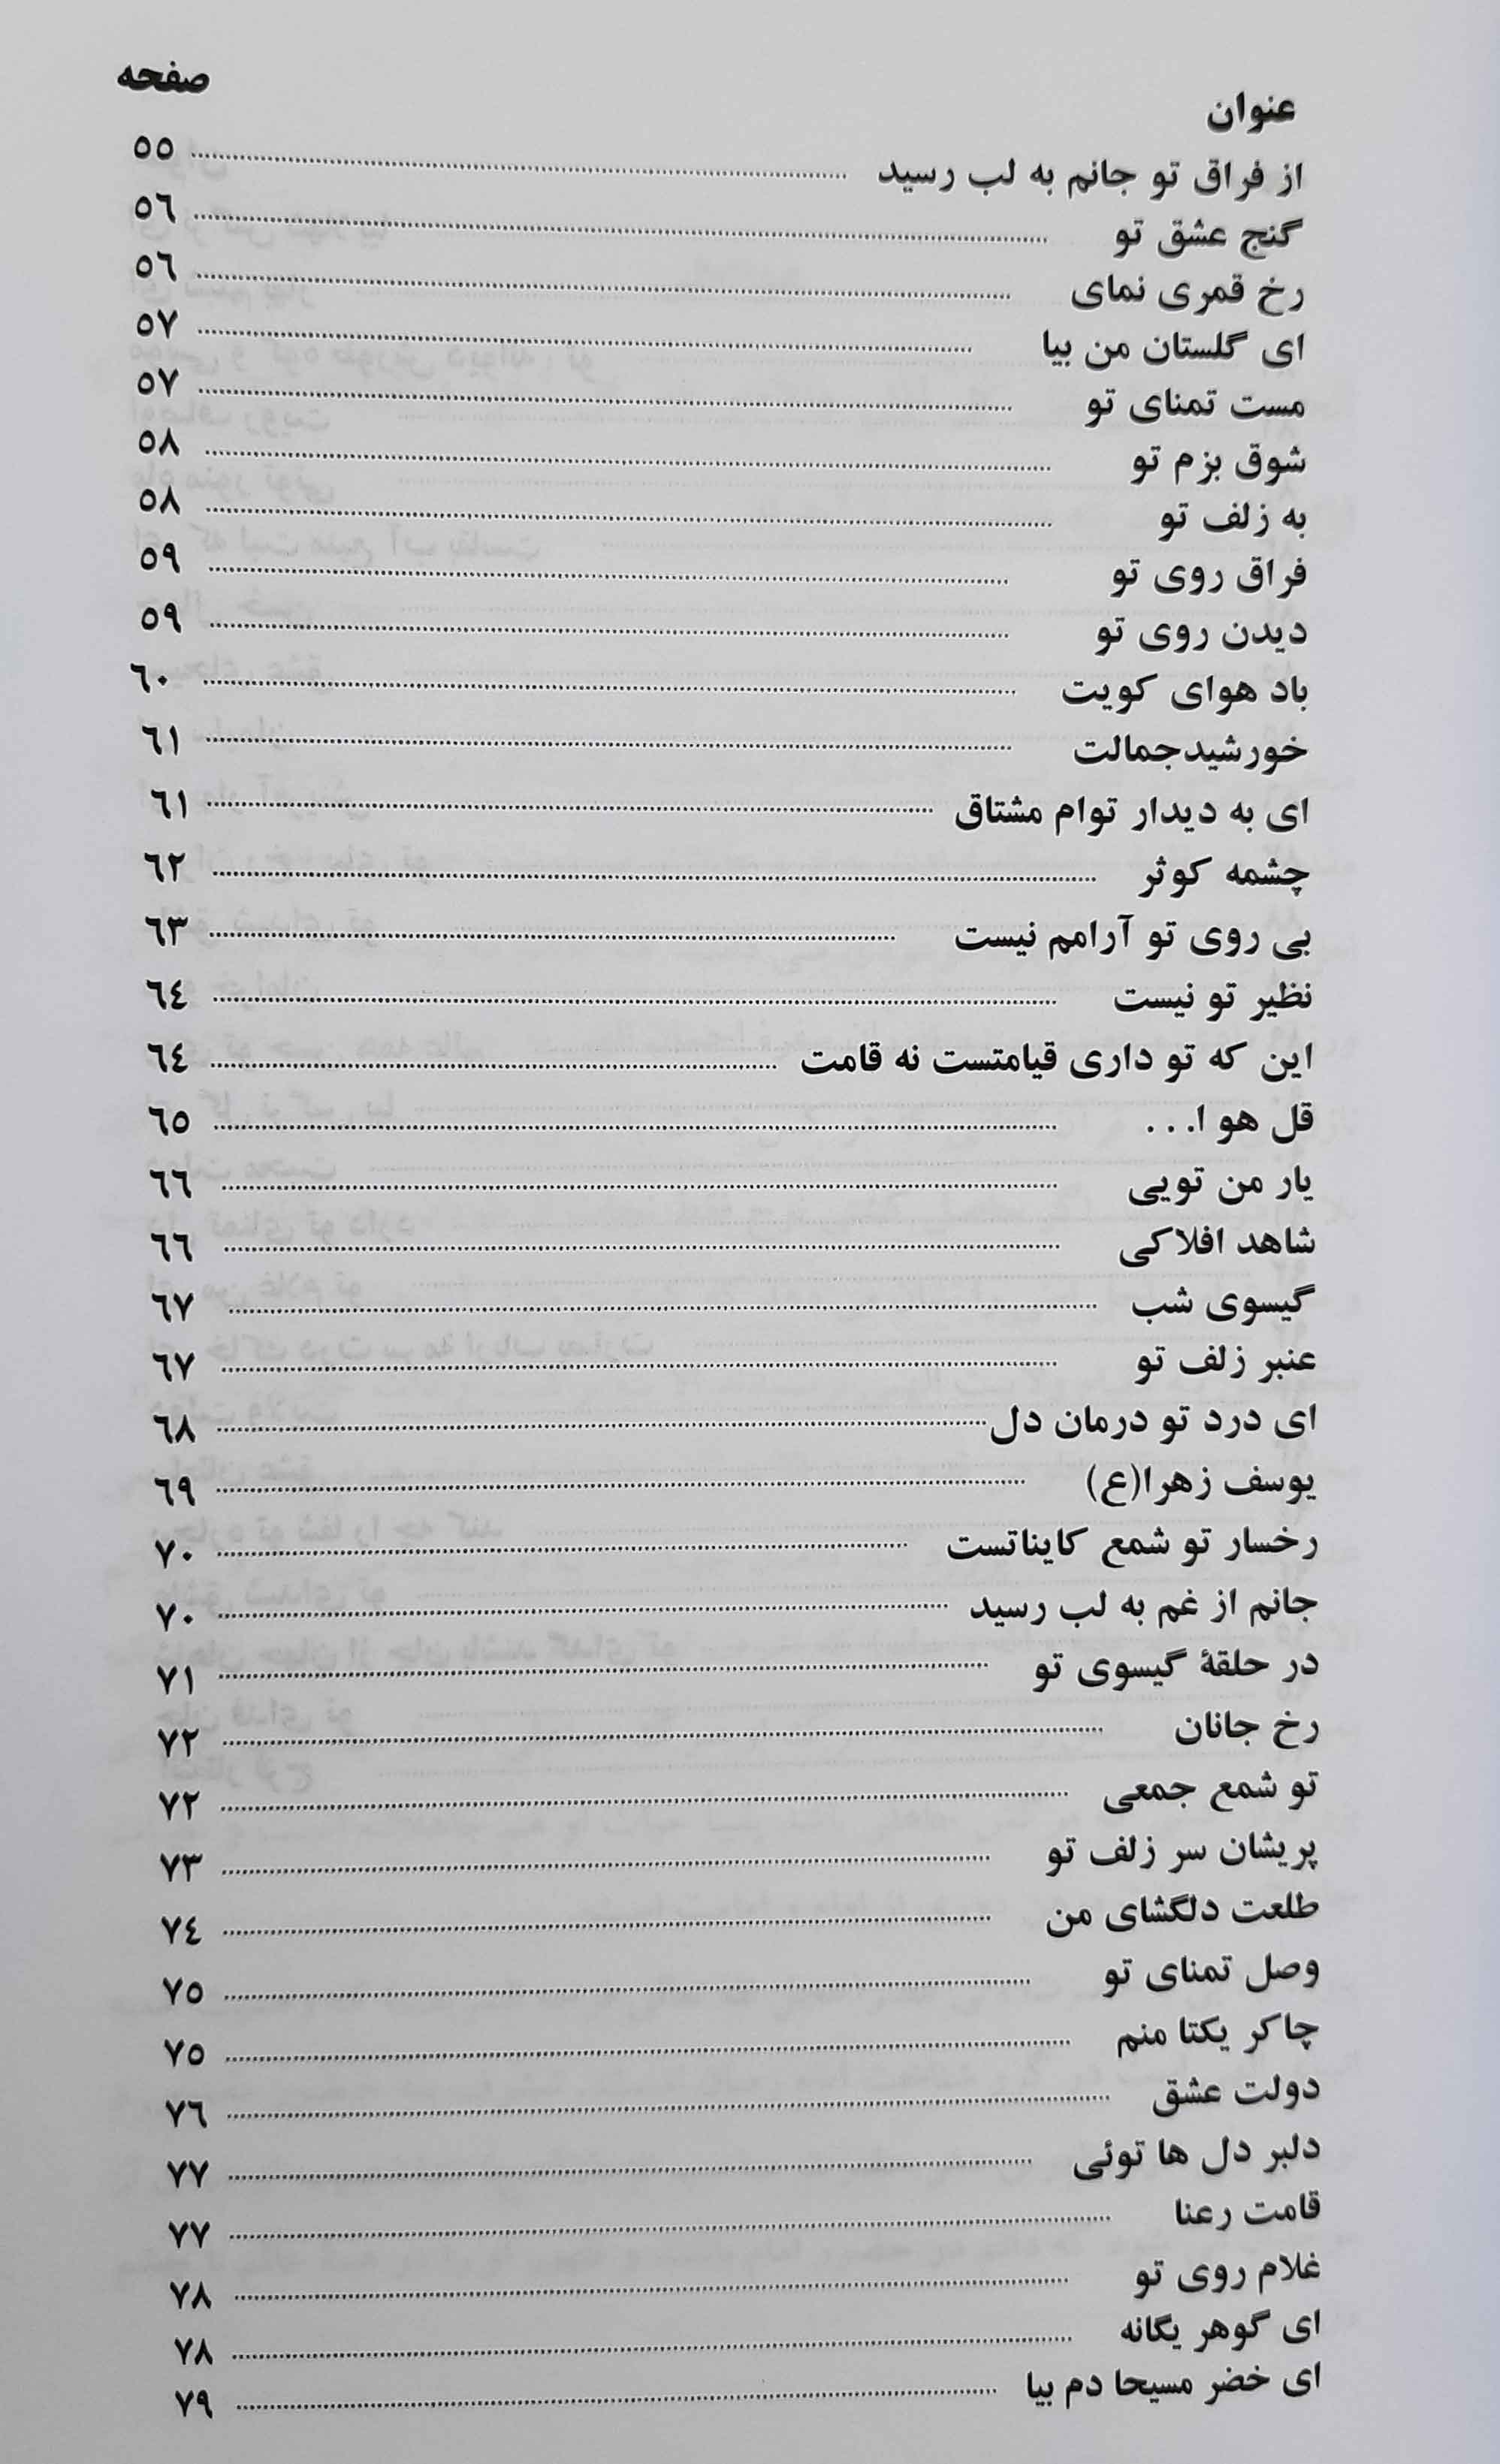 عنوان صفحه
از فراق تو جانم به لب رسید ٥٥
گنج عشق تو ٥٦
رخ قمری نمای ٥٦
ای گلستان من بیا ٥٧
مست تمنای تو ٥٧
شوق بزم تو ٥٨
به زلف تو ٥٨
فراق روی تو ٥٩
دیدن روی تو ٥٩
باد هوای کویت ٦٠
خورشیدجمالت ٦١
ای به دیدار توام مشتاق ٦١
چشمه کوثر ٦٢
بی روی تو آرامم نیست ٦٣
نظیر تو نیست ٦٤
این که تو داری قیامتست نه قامت ٦٤
قل هو ا... ٦٥
یار من تویی ٦٦
شاهد افلاکی ٦٦
گیسوی شب ٦٧
عنبر زلف تو ٦٧
ای درد تو درمان دل ٦٨
یوسف زهرا(ع) ٦٩
رخسار تو شمع کایناتست ٧٠
جانم از غم به لب رسید ٧٠
در حلقهٔ گیسوی تو ٧١
رخ جانان ٧٢
تو شمع جمعی ٧٢
پریشان سر زلف تو ٧٣
طلعت دلگشای من ٧٤
وصل تمنای تو ٧٥
چاکر یکتا منم ٧٥
دولت عشق ٧٦
دلبر دل ها توئی ٧٧
قامت رعنا ٧٧
غلام روی تو ٧٨
ای گوهر یگانه ٧٨
ای خضر مسیحا دم بیا ٧٩